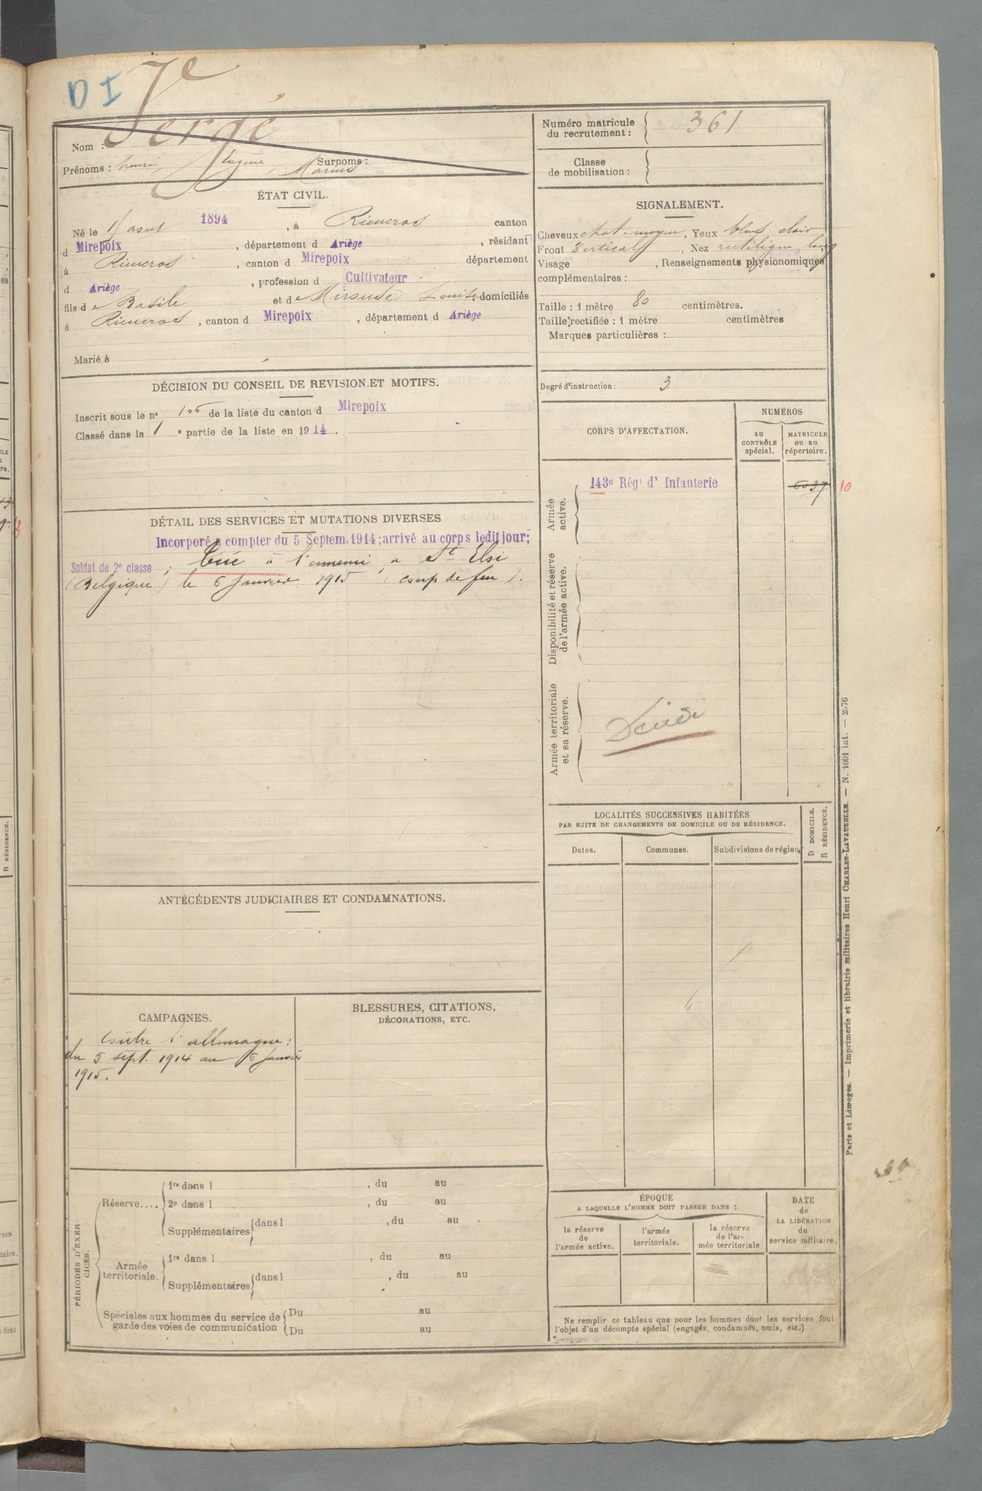 DI
Nom : Vergé
Prénoms : Henri, Eugène, Marius Surnoms :
Numéro matricule du recrutement : 361
Classe de mobilisation :
ÉTAT CIVIL.
Né le 1 août 1894, à Rieucros canton
d Mirepoix, département d Ariège, résidant
à Rieucros, canton d Mirepoix département
d Ariège, profession d Cultivateur
fils de Basile et de Louise domiciliés
à Rieucros, canton d Mirepoix, département d Ariège
Marié à
SIGNALEMENT.
Cheveux chat. moyen, Yeux bleu clair
Front Vertical, Nez rectiligne long
Visage , Renseignements physionomiques
complémentaires :
Taille : 1 mètre 80 centimètres.
Taille rectifiée : 1 mètre centimètres
Marques particulières :
Degré d'instruction : 3
DÉCISION DU CONSEIL DE REVISION ET MOTIFS.
Inscrit sous le n° de la liste du canton d Mirepoix
Classé dans la 1e partie de la liste en 1914.
CORPS D'AFFECTATION.
NUMÉROS
AU CONTRÔLE spécial.
MATRICULE ou au répertoire.
Armée active.
143e Régt d' Infanterie
6037
10
Disponibilité et réserve de l'armée active.
Armée territoriale et sa réserve.
Décédé
DÉTAIL DES SERVICES ET MUTATIONS DIVERSES
Incorporé à compter du 5 Septem. 1914; arrivé au corps ledit jour;
Soldat de 2e classe ; Tué à l'ennemi à St Eloi
(Belgique) le 6 Janvier 1915 (coup de feu).
LOCALITÉS SUCCESSIVES HABITÉES
PAR SUITE DE CHANGEMENTS DE DOMICILE OU DE RÉSIDENCE.
Dates.
Communes.
Subdivisions de région.
D DOMICILE.
R RÉSIDENCE.
ANTÉCÉDENTS JUDICIAIRES ET CONDAMNATIONS.
CAMPAGNES.
Contre l'allemagne :
du 5 sept. 1914 au 6 janvier
1915.
BLESSURES, CITATIONS,
DÉCORATIONS, ETC.
PÉRIODES D'EXERCICES.
Réserve....
1re dans l , du au
2e dans l , du au
Supplémentaires dans l , du au
Armée territoriale.
1re dans l , du au
Supplémentaires dans l , du au
Spéciales aux hommes du service de garde des voies de communication
Du au
Du au
ÉPOQUE
A LAQUELLE L'HOMME DOIT PASSER DANS :
la réserve de l'armée active.
l'armée territoriale.
la réserve de l'armée territoriale
DATE de LA LIBÉRATION du service militaire.
Ne remplir ce tableau que pour les hommes dont les services font
l'objet d'un décompte spécial (engagés, condamnés, omis, etc.).
Paris et Limoges. — Imprimerie et librairie militaires Henri CHARLES-LAVAUZELLE. — N. 1001 int. — 2576